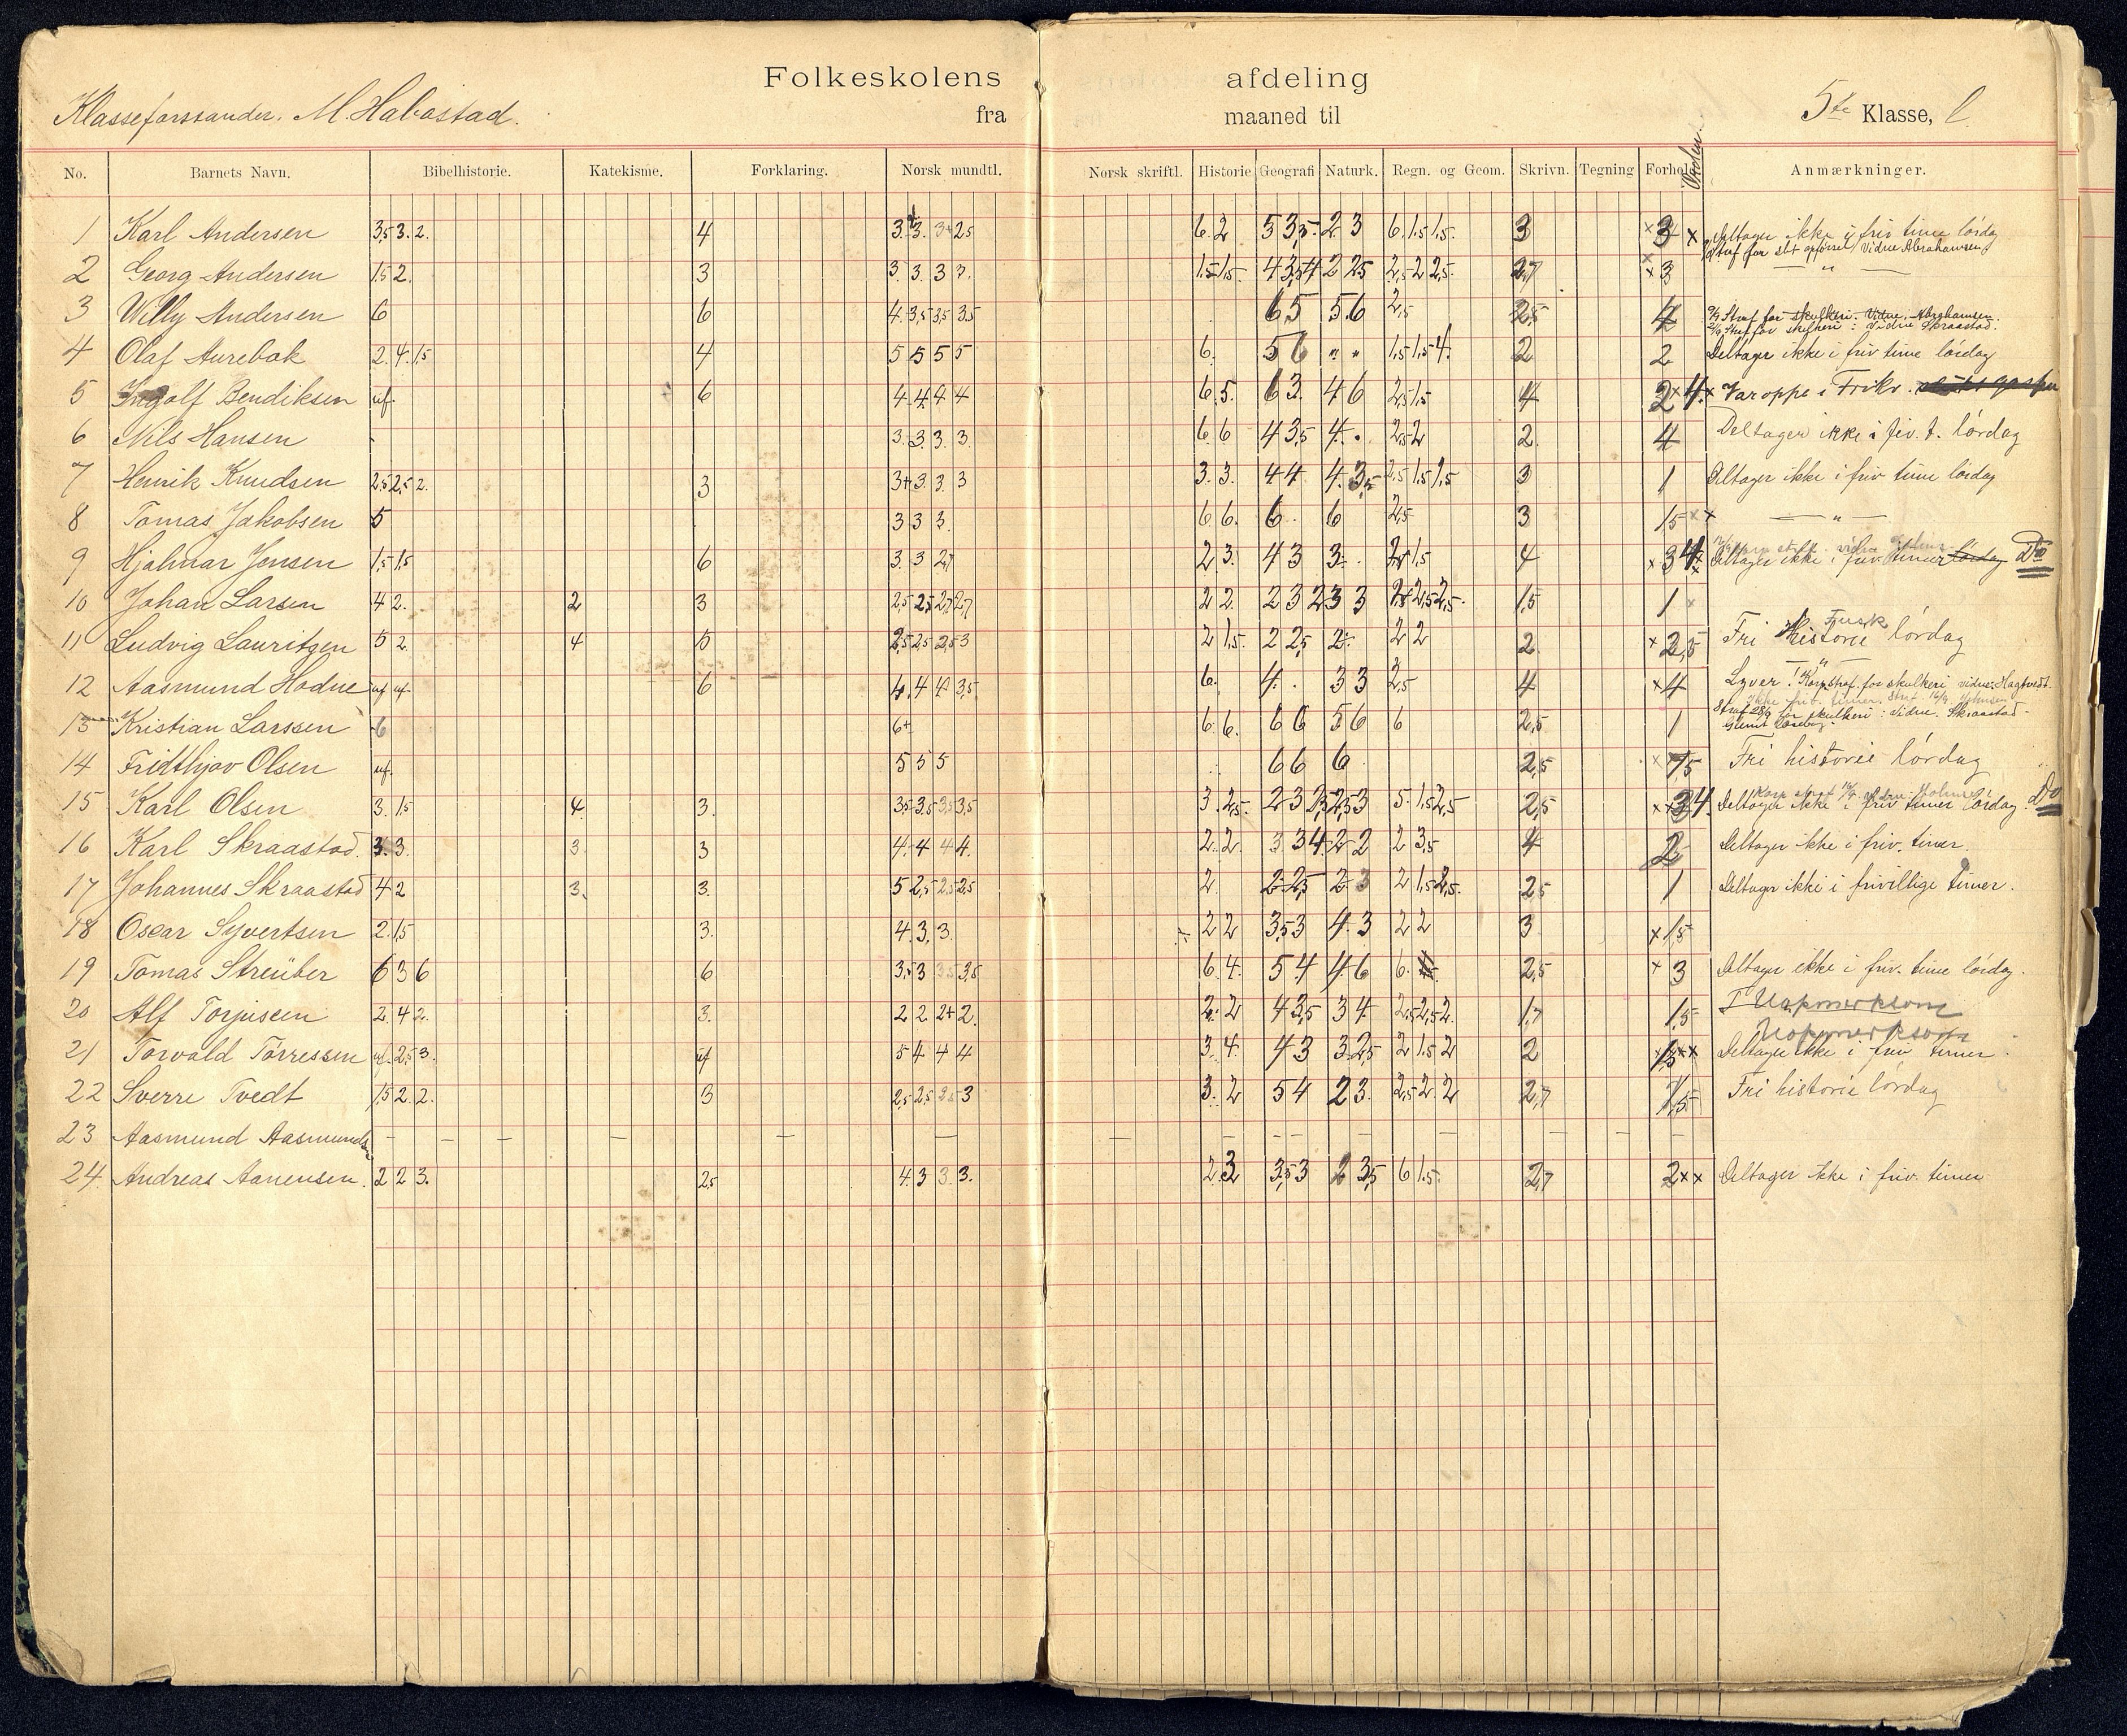 Folkeskolens afdeling
Klasseforstander. M. Habostad. fra maaned til 5te Klasse, l
No. Barnets Navn. Bibelhistorie. Katekisme. Forklaring. Norsk mundtl. Norsk skriftl. Historie Geografi Naturk. Regn. og Geom. Skrivn. Tegning Forhold Anmærkninger.
1 Karl Andersen 3,5 3. 2. 4 3. 3. 3+ 2,5 6. 2 5 3 3,5 2 3 6. 1.5 1.5. 3 × 3 × Deltager ikke i friv time lördag
2 Georg Andersen 1.5 2. 3 3. 3. 3 3. 1.5 1.5. 4 3,5 4 2 2.5 2,5 2 2,5. 2,7 × 3 — " —
3 Willy Andersen 6 6 4. 3,5 3,5 3.5 6 5 5 6 2,5 2,5 4 Straf for skulkeri. Vidne. Abrahamsen.
Straf for skulkeri: Vidne Skraastad.
4 Olaf Aurebak 2. 4. 1.5 4 5 5 5 5 6. 5 6 " " 1.5 1.5 4. 2 2 Deltager ikke i friv time lördag
5 Ingolf Bendiksen uf. 6 4 4 4 4 6 5. 6 3. 4 6 2,5 1,5 4 2 × 4. × Var oppe i Frikv.
6 Nils Hansen 3. 3. 3. 3. 6 6 4 3,5 4. . 2,5 2 2. 4 Deltager ikke i friv. t. lördag
7 Henrik Knudsen 2.5 2,5 2. 3 3+ 3. 3. 3 3. 3. 4 4 4. 3,5 2,5 1.5 1,5 3 1 Deltager ikke i friv time lördag
8 Tomas Jakobsen 5 3 3 3. 6 6. 6. 6 2,5 3 1.5 × × — " —
9 Hjalmar Jensen 1,5 1,5 6 3. 3 2,7 2 3. 4 3 3. 1,5 4 × 3 4 Deltager ikke i friv. timer lördag Do
10 Johan Larsen 4 2. 2 3 2,5 2,5 2,7 2,7 2 2. 2 3 2 3 3 2,5 2,5. 1,5 1 ×
11 Ludvig Lauritzen 5 2. 4 5 2,5 2,5 2,5 3 2 1,5. 2 2,5 2. 2 2 2. × 2,5 Fri Historie lördag
12 Aasmund Hodne uf uf 6 4. 4 4 3,5 6. 4. . 3 3 2,5 4 × 4 Lyver! Korp straf. for skulkeri vidne: Hagtvedt.
13 Kristian Larssen 6 6+ 6. 6. 6 6 5 6 6 2,5 1 Straf 28/9 for skulkeri: Vidne. Skraastad.
14 Fridthjov Olsen uf. 5 5 5 6 6 6 2,5 × 1,5 Fri historie lördag
15 Karl Olsen 3. 1.5 4. 3. 3,5 3.5 3,5 3,5 3 2,5. 2 3 2,5 2,5 3 5. 1.5 2,5 2,5 × × 3 4. Deltager ikke i friv timer lördag. Do
16 Karl Skraastad. 3. 3. 3. 3 4. 4 4 4. 2. 2. 3 3 4. 2 2 2 3,5 4 2 Deltager ikke i friv. timer.
17 Johannes Skraastad 4 2 3. 3. 5 2,5 2,5 2,5 2. 2 2,5 2 3 2 1.5 2,5. 2,5 1 Deltager ikke i frivillige timer.
18 Oscar Syvertsen 2. 1.5 3. 4. 3. 3 2 2 3,5 3 4. 3 2 2 3 × 1,5
19 Tomas Streüber 6 3 6 6 3,5 3 3,5 3,5 6. 4. 5 4 4 6 6. 2,5 × 3 Deltager ikke i friv. time lördag.
20 Alf Torjusen 2. 4 2. 3. 2 2 2+ 2. 2. 2 4 3,5 3 4 2,5 2,5 2. 1,7 1,5 Uopmerksom
Uopmerksom
21 Torvald Tørressen uf. 2.5 3. uf 5 4 4 4 3. 4. 4 3 3. 2,5 2 1.5 2 2 1,5 × × Deltager ikke i friv timer.
22 Sverre Tvedt 1.5 2. 2. 3 2,5 2,5 2,5 3 3. 2 5 4 2 3. 2,5 2. 2 2,7 1,5 Fri historie lördag
23 Aasmund Aasmunds. — — — — — — — — — — — — — —
24. Andreas Aanensen. 2 2 3. 2,5 4. 3 3. 3. 2. 3 3,5 3 2 3,5 6 1.5 2,7 2 × × Deltager ikke i friv. timer